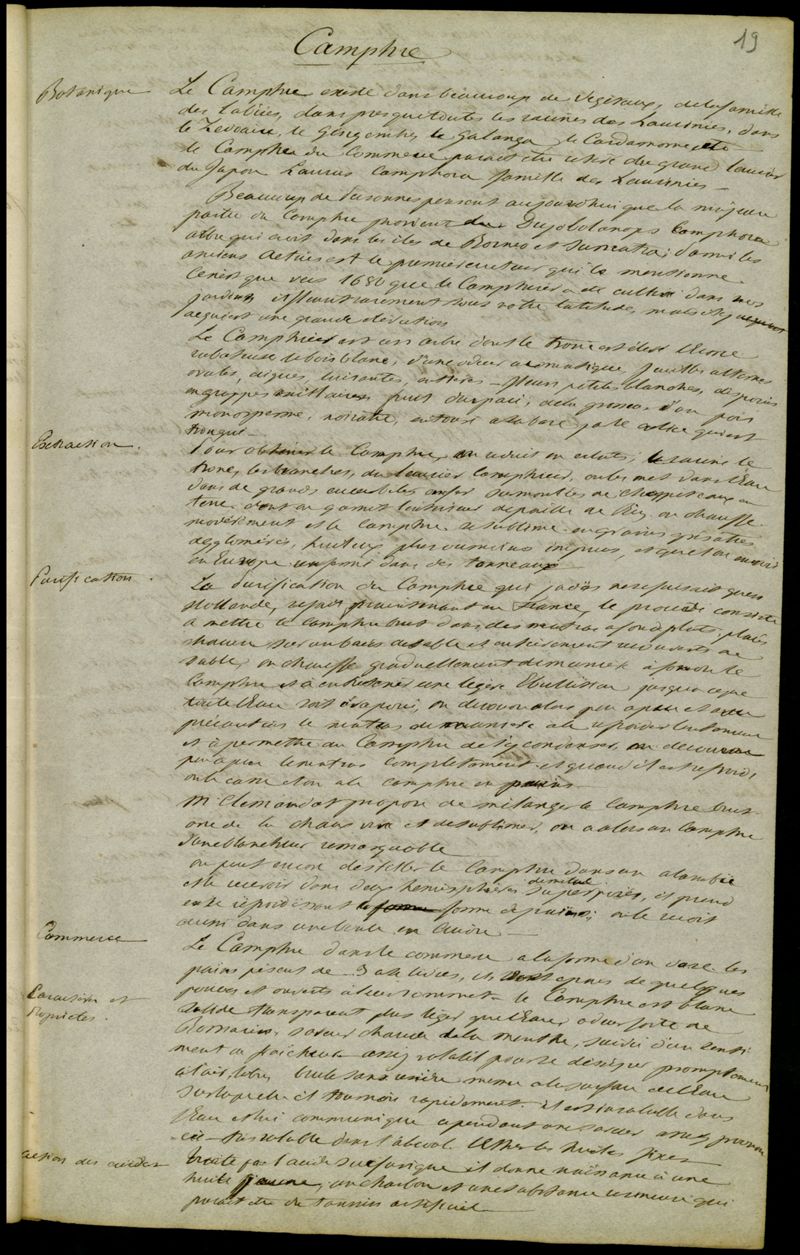 19
Camphre
Botanique Le Camphre existe dans beaucoup de végétaux, de la famille
des labiées, dans presque toutes les racines des Laurinées, dans
le Zédoaire, le Gingembre, le Galanga, le Cardamome etc
le Camphre du Commerce parait être retiré du grand laurier
du Japon Laurus Camphora famille des Laurinées –
Beaucoup de personnes pensent aujourd'hui que la majeure
partie du Camphre provient du Dryobolanops Camphora
arbre qui croit dans les iles de Borneo et Sumatra; parmi les
anciens Aetius est le premier auteur qui la mentionne.
Ce n'est que vers 1680 que le Camphrier a été cultivé dans nos
jardins il fleurit rarement sous notre latitude, mais il y acquiert
une grande élévation
Le Camphrier est un arbre dont le tronc est élevé l'écorce
raboteuse le bois blanc, d'une odeur aromatique feuilles alternes
ovales, aigues, luisantes, entières – fleurs petites blanches, disposées
en grappes axillaires, fruit drupacé, de la grosseur d'un pois
monosperme, noiratre, entouré à sa base par le calice qui est
tronqué –
Extraction. Pour obtenir le Camphre, on réduit en éclats, la racine le
tronc, les branches, du laurier Camphrier, on les met dans l'Eau
dans de grandes cucurbites en fer surmontées de chapiteaux en
terre dont on garnit l'intérieur de paille de Riz, on chauffe
modérément et le Camphre se sublime en grains grisatres
agglomérés, huileux, plus ou moins impurs, et que l'on envoie
en Europe renfermé dans des tonneaux
Purification. La Purification du Camphre qui jadis ne se faisait qu'en
Hollande, se fait maintenant en France, le procédé consiste
à mettre le Camphre brut dans des matras à fond plat, placés
chacun sur un bain de sable et entièrement recouverts de
sable, on chauffe graduellement de manière à fondre le
Camphre et à entretenir une légère Ebullition jusqu'à ce que
toute l'Eau soit évaporée, on découvre alors peu à peu et avec
précaution le matras de manière à le refroidir lentement
et à permettre au Camphre de s'y condenser, on découvre
peu à peu le matras complétement et quand il est refroidi
on le casse et on a le camphre en pains
Mr Clemandot propose de mélanger le Camphre brut
avec de la chaux vive et de sublimer, on a alors un Camphre
d'une blancheur remarquable
on peut encore distiller le Camphre dans un alambic
et le recevoir dans deux hémisphères de métal superposés, il prend
en se refroidissant la forme de pains; on le reçoit
aussi dans une boule en cuivre –
Commerce Le Camphre dans le commerce a la forme d'un vase les
pains pèsent de 3 à 4 livres, et sont épais de quelques
pouces et ouverts à leur sommet –
Caractères et Propriétés. Le Camphre est blanc
solide transparent, plus léger que l'Eau, odeur forte de
Romarin, saveur chaude de la menthe, suivie d'un senti-
ment de fraicheur – assez volatil pour se dissiper promptement
à l'air libre, brule sans résidu même à la surface de l'Eau
sur laquelle il tournoie rapidement. Il est insoluble dans
l'Eau et lui communique cependant une saveur assez pronon-
cée – très soluble dans l'alcool l'Ether les huiles fixes
action des acides traité par l'acide sulfurique il donne naissance à une
huile jaune, un charbon et une substance resineuse qui
parait être du tannin artificiel